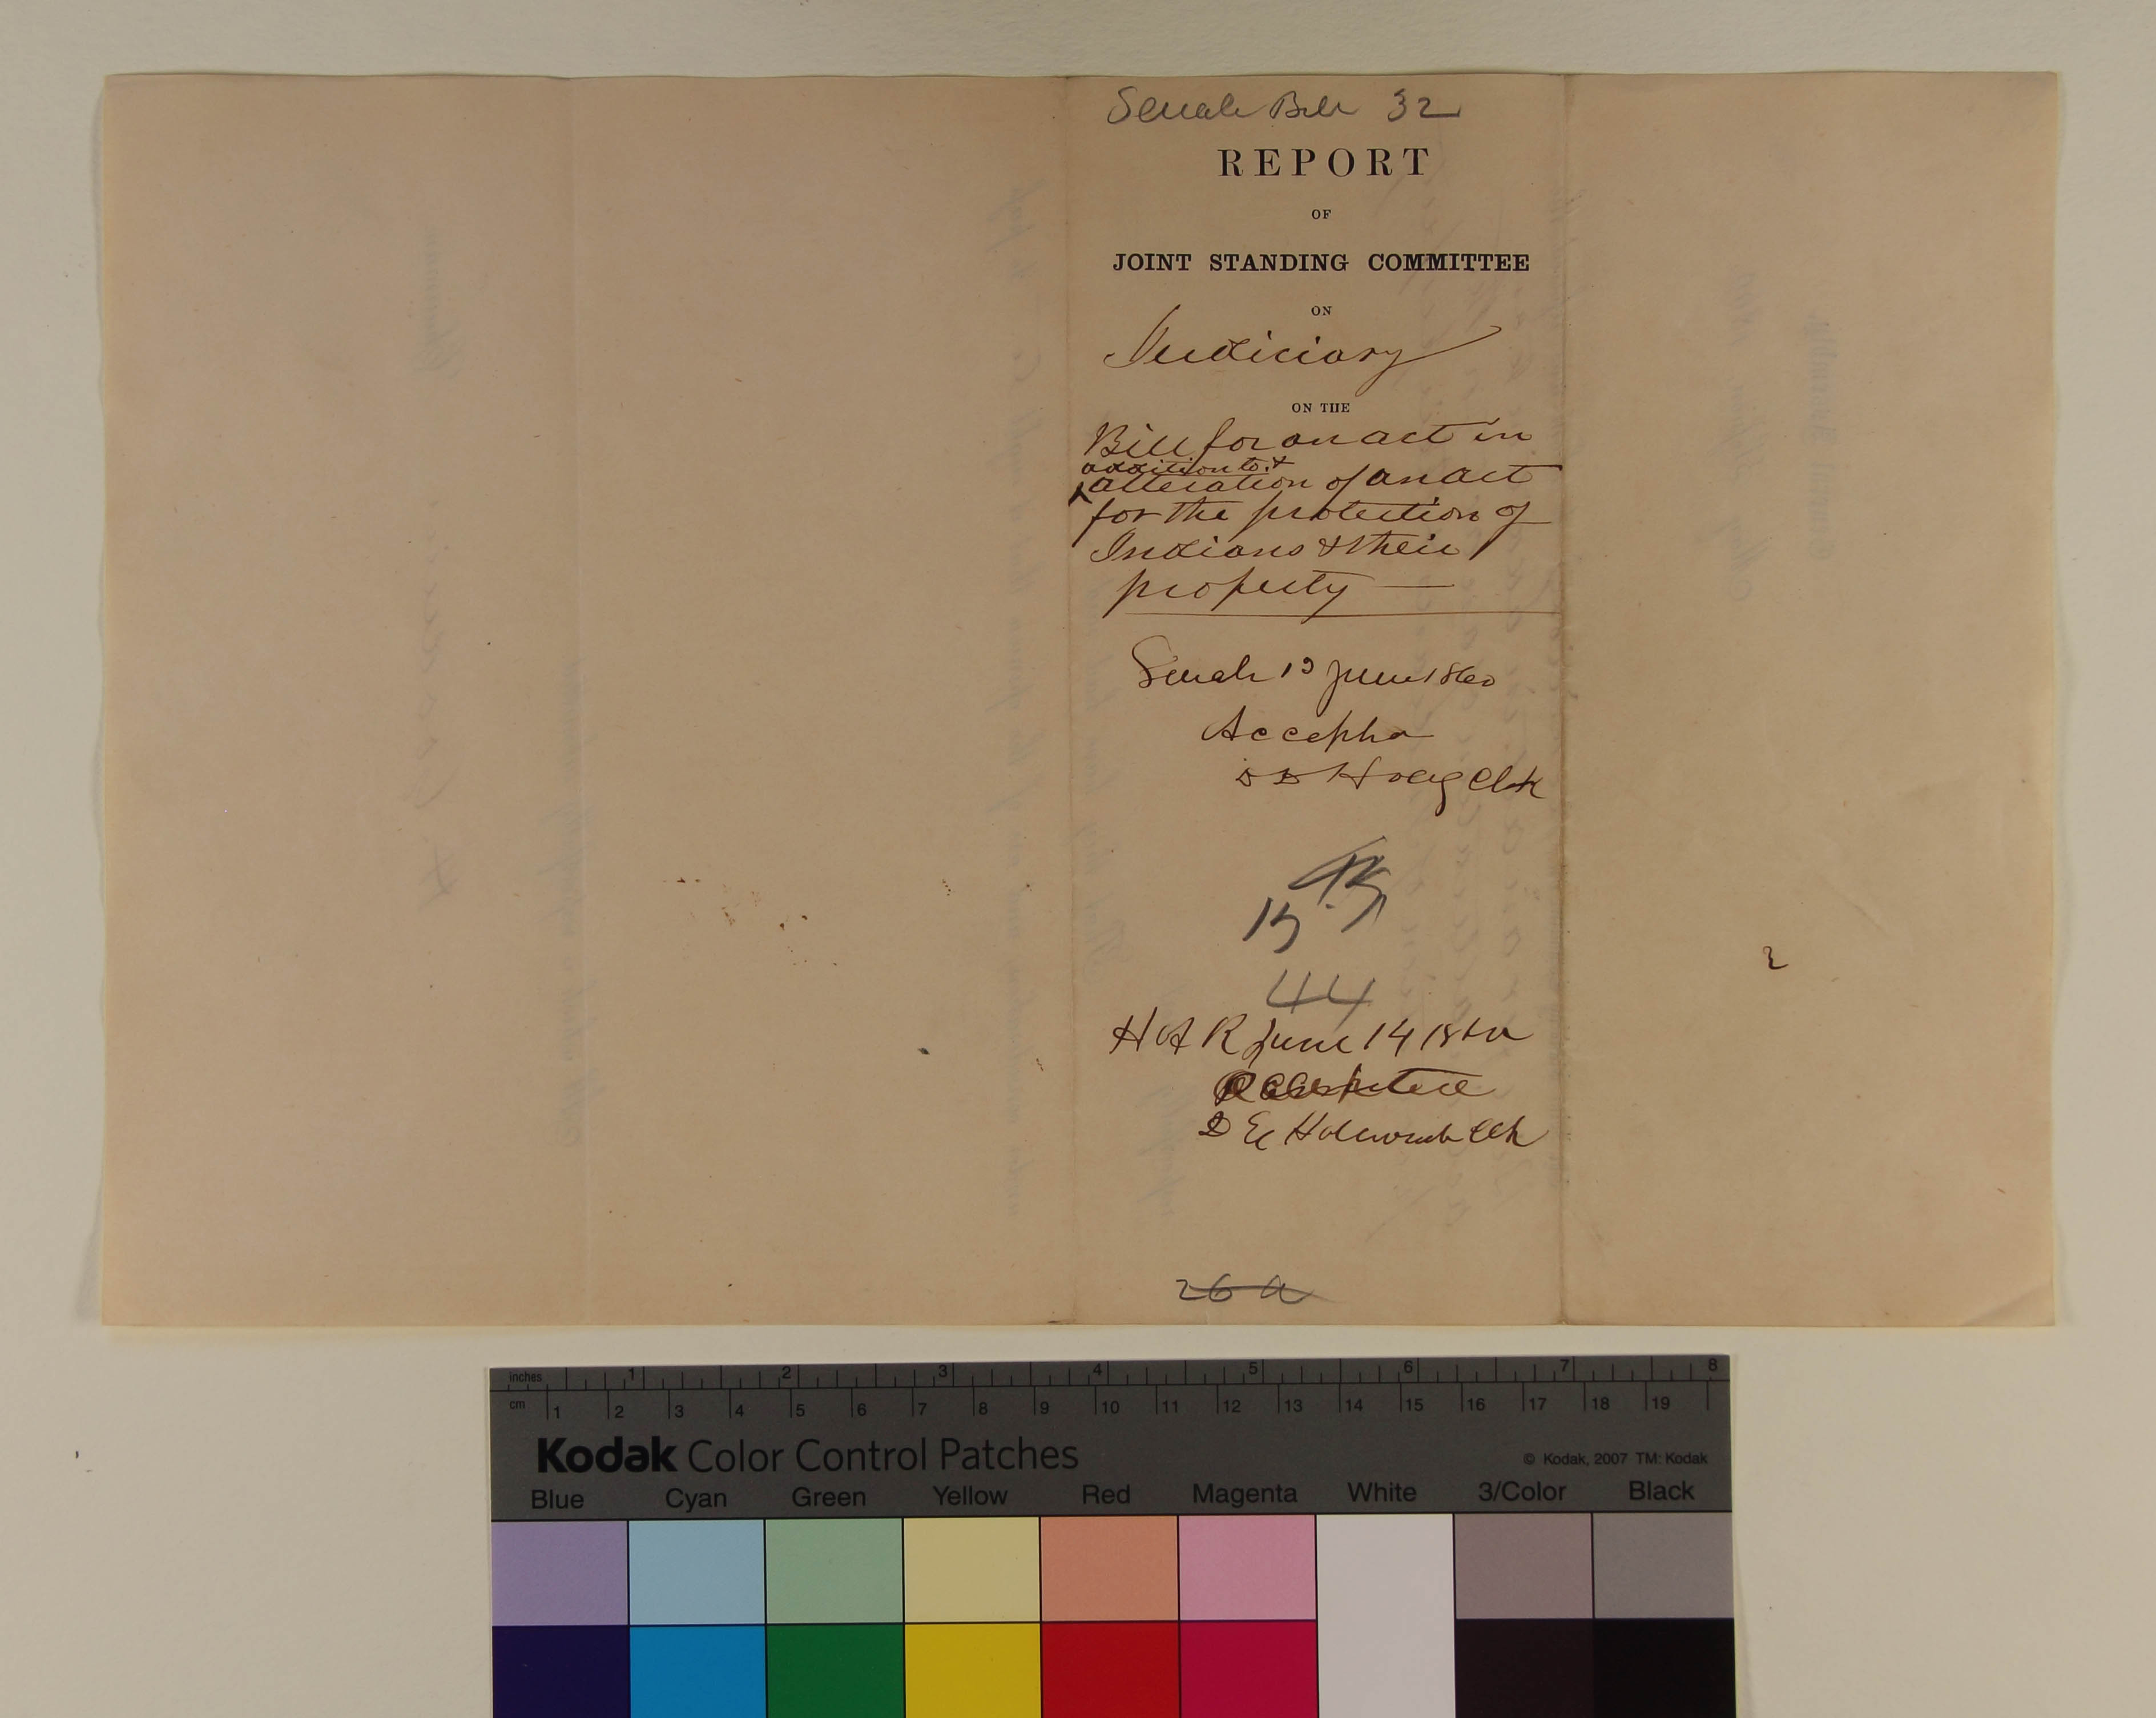 Senate Bill 32
REPORT
OF
JOINT STANDING COMMITTEE
ON
Judiciary
ON THE
Bill for an act in
addition to &
alteration of an act
for the protection of
Indians & their
property —
Senate 13 June 1860
Accepted
Clk
15
44
H of R June 14 1860
Accepted
D E Holcomb Clk
26 a
2
inches 1 2 3 4 5 6 7 8
cm 1 2 3 4 5 6 7 8 9 10 11 12 13 14 15 16 17 18 19
Kodak Color Control Patches
© Kodak, 2007 TM: Kodak
Blue Cyan Green Yellow Red Magenta White 3/Color Black